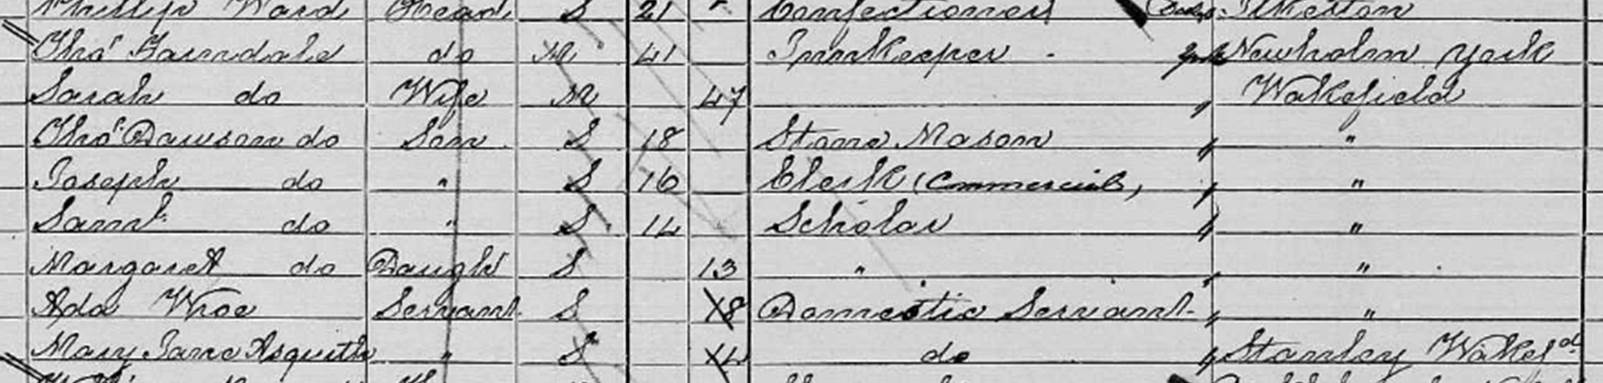 Phillip Ward Head S 21 Confectioner Ilkeston
Thos Farndale do M 41 Innkeeper Newholm York
Sarah do Wife M 47 " Wakefield
Thos Dawson do Son S 18 Stone Mason " "
Joseph do " S 16 Clerk (Commercial) " "
Saml do " S 14 Scholar " "
Margaret do Daught S 13 " " "
Ada Wroe Servant S 18 Domestic Servant " "
Mary Jane Asquith " S do " Stanley Wakefd